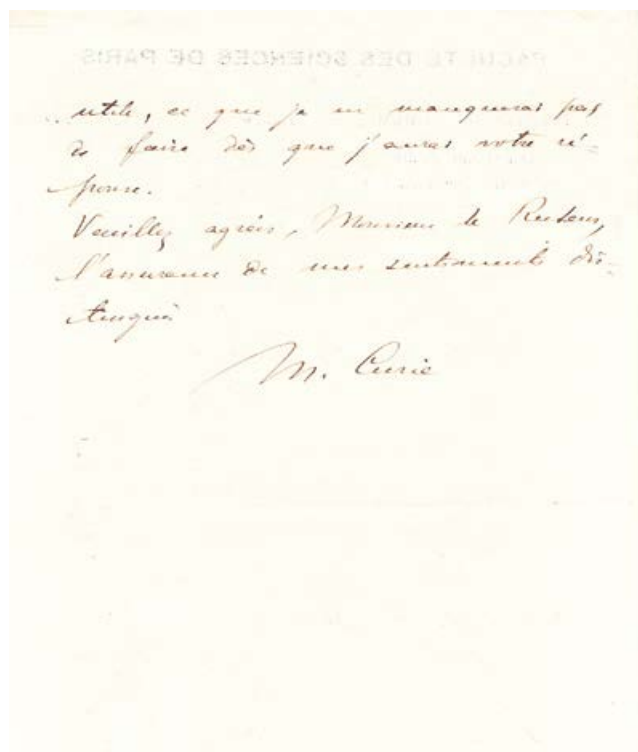 utile, ce que je ne manquerai pas
de faire dès que j'aurai votre ré-
ponse.
Veuillez agréer, Monsieur le Recteur,
l'assurance de mes sentiments dis-
tingués
M. Curie
FACULTÉ DES SCIENCES DE PARIS